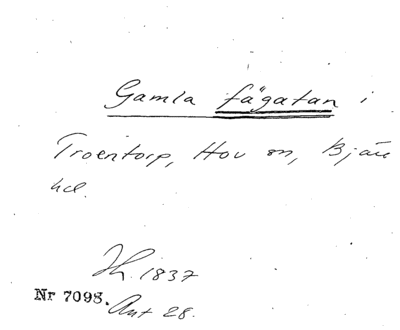 Gamla fägatan i
Troentorp, Hov sn, Bjäre
hd.
1837
Nr 7098. Ant 28.